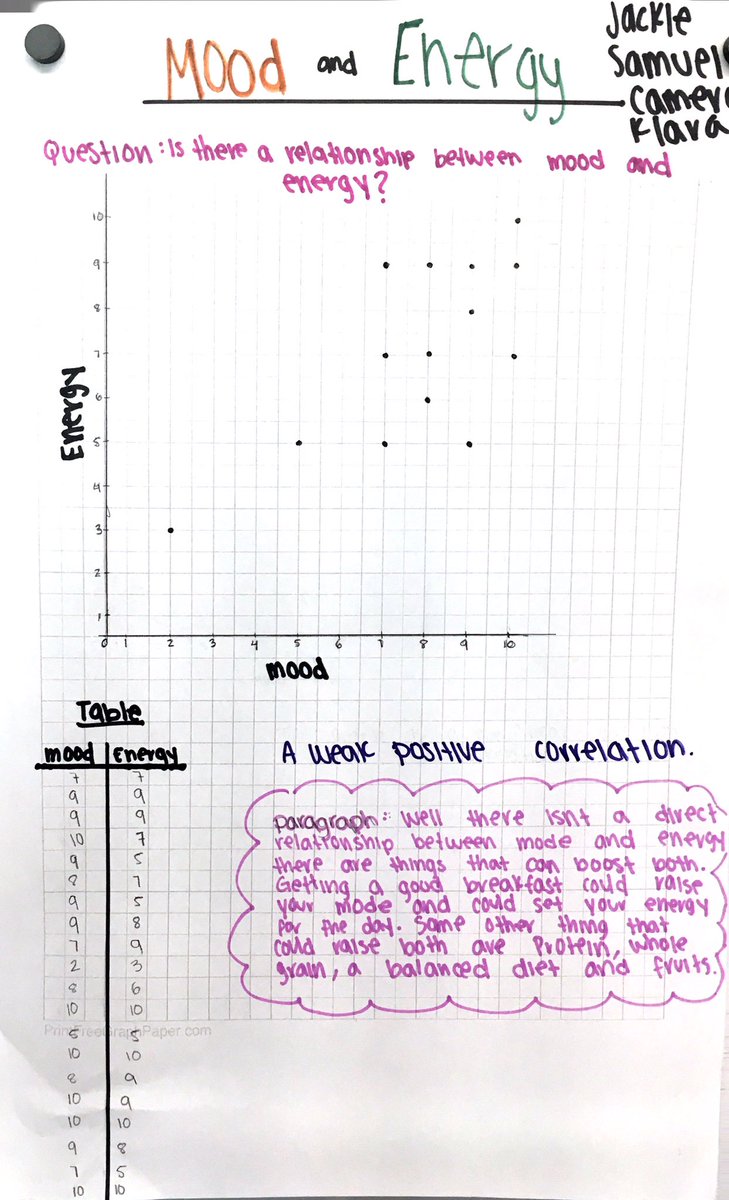 Mood and Energy
Jackie
Samuel
Camero
Klara
Question: Is there a relationship between mood and
energy?
10
9
8
7
6
5
4
3
2
1
Energy
0 1 2 3 4 5 6 7 8 9 10
mood
Table
mood Energy
7 7
9 9
9 9
10 7
9 5
8 7
9 5
9 8
7 9
2 3
8 6
10 10
PrintFreeGraphPaper.com
5 5
10 10
8 9
10 9
10 10
9 8
7 5
10 10
A weak positive correlation.
paragraph: Well there isnt a direct
relationship between mode and energy
there are things that can boost both.
Getting a good breakfast could raise
your mode and could set your energy
for the day. Some other thing that
could raise both are Protein, whole
grain, a balanced diet and fruits.